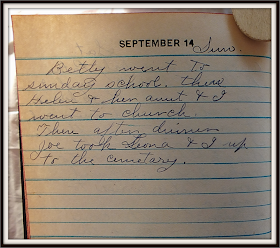 SEPTEMBER 14 Sun.
Betty went to
sunday school. then
Helen & her aunt & I
went to church.
Then after dinner
Joe took Leona & I up
to the cemetary.